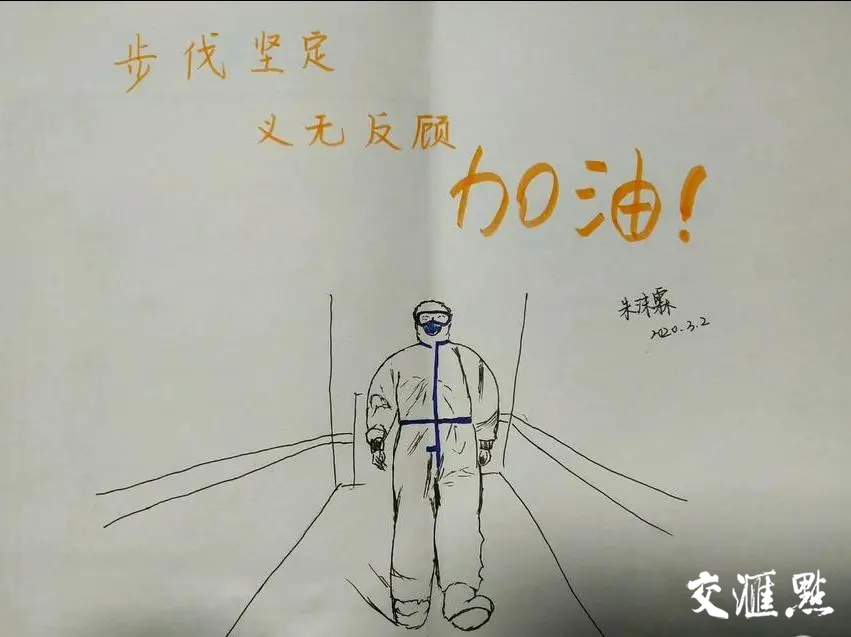 步伐坚定
义无反顾
加油!
朱沫霖
2020.3.2
交滙點